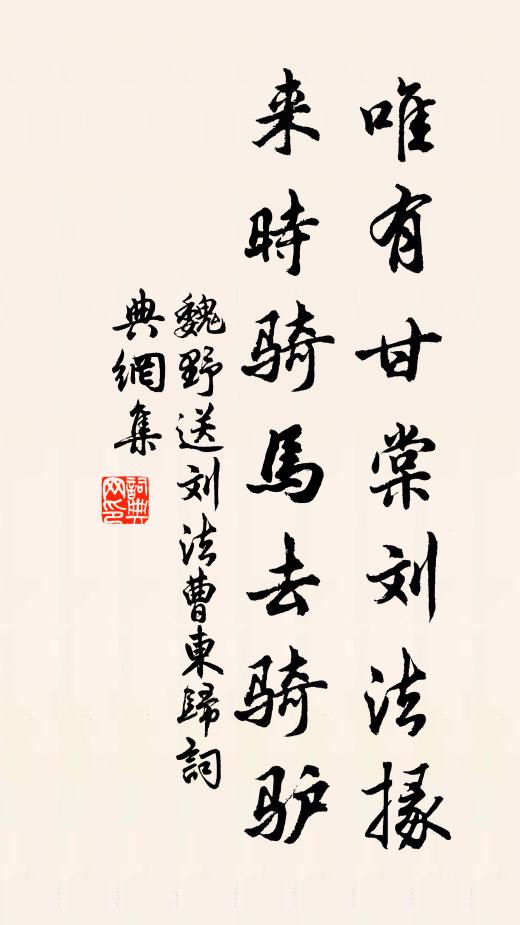 唯有甘棠刘法掾
来時骑馬去骑驴
魏野送刘法曹東歸詞
典網集
詞典网印